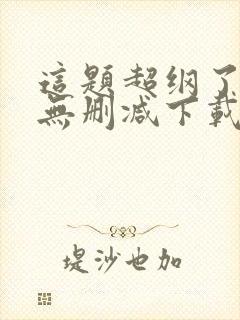 這題超纲了
無删减下載
堤沙也加